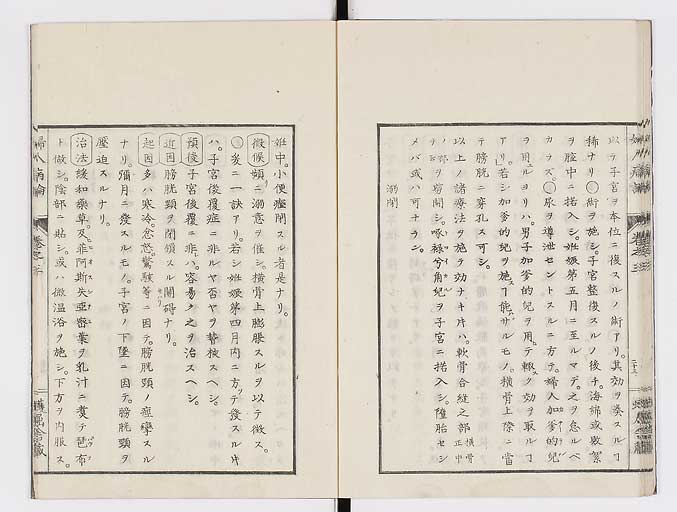 以テ子宮ヲ本位ニ復スルノ術アリ。其効ヲ奏スルヿ
稀ナリ◯術ヲ施シ。子宮整復スルノ後チ。海綿或
ヲ腟中ニ搭入シ。妊娠第五月ニ至ルマデ。之ヲ怠ルベ
カラズ◯尿ヲ導泄セントスルニ方テ。婦人加爹的兒
ヲ用ルヨリハ。男子加爹的兒ヲ用テ輙ク効ヲ取ルヿ
アリ。若シ加爹的兒ヲ施スヿ能ハザルモノ。横骨上際ニ當
テ膀胱ニ穿孔ス可シ。
以上ノ諸療法ヲ施テ効ナキ片ハ。軟骨合縫之部横骨正中
ノ部ヲ剪開シ。啄祿兮角兒ヲ子宮ニ搭入シ。墮胎セシ
メバ或ハ可ナラン。
溺閉
妊中。小便癃閉スル者是ナリ。
徴候 頻ニ溺意ヲ催シ。横骨上膨脹スルヲ以テ徴ス。
◯爰ニ一訣アリ。若シ妊娠第四月内ニ方テ發スル片
ハ。子宮後覆症ニ非ルヤ否ヤヲ督検スヘシ。
預後 子宮後覆ニ非ハ。容易ク之ヲ治スヘシ。
近因 膀胱頸ヲ閉鎖スル閫碍ナリ。
起因 多ハ寒冷。忿怒。驚駭等ニ因テ。膀胱頸ノ痙攣スル
ナリ。彌月ニ發スルモノ。子宮ノ下墜ニ因テ。膀胱頸ヲ
壓迫スルナリ。
治法 緩和藥草。及菲阿斯失亞謬葉ヲ乳汁ニ煑テ琶布
ト做シ。陰部ニ貼シ。或ハ微温浴ヲ施シ。下方ヲ内服ス。
婦人病論 卷之三